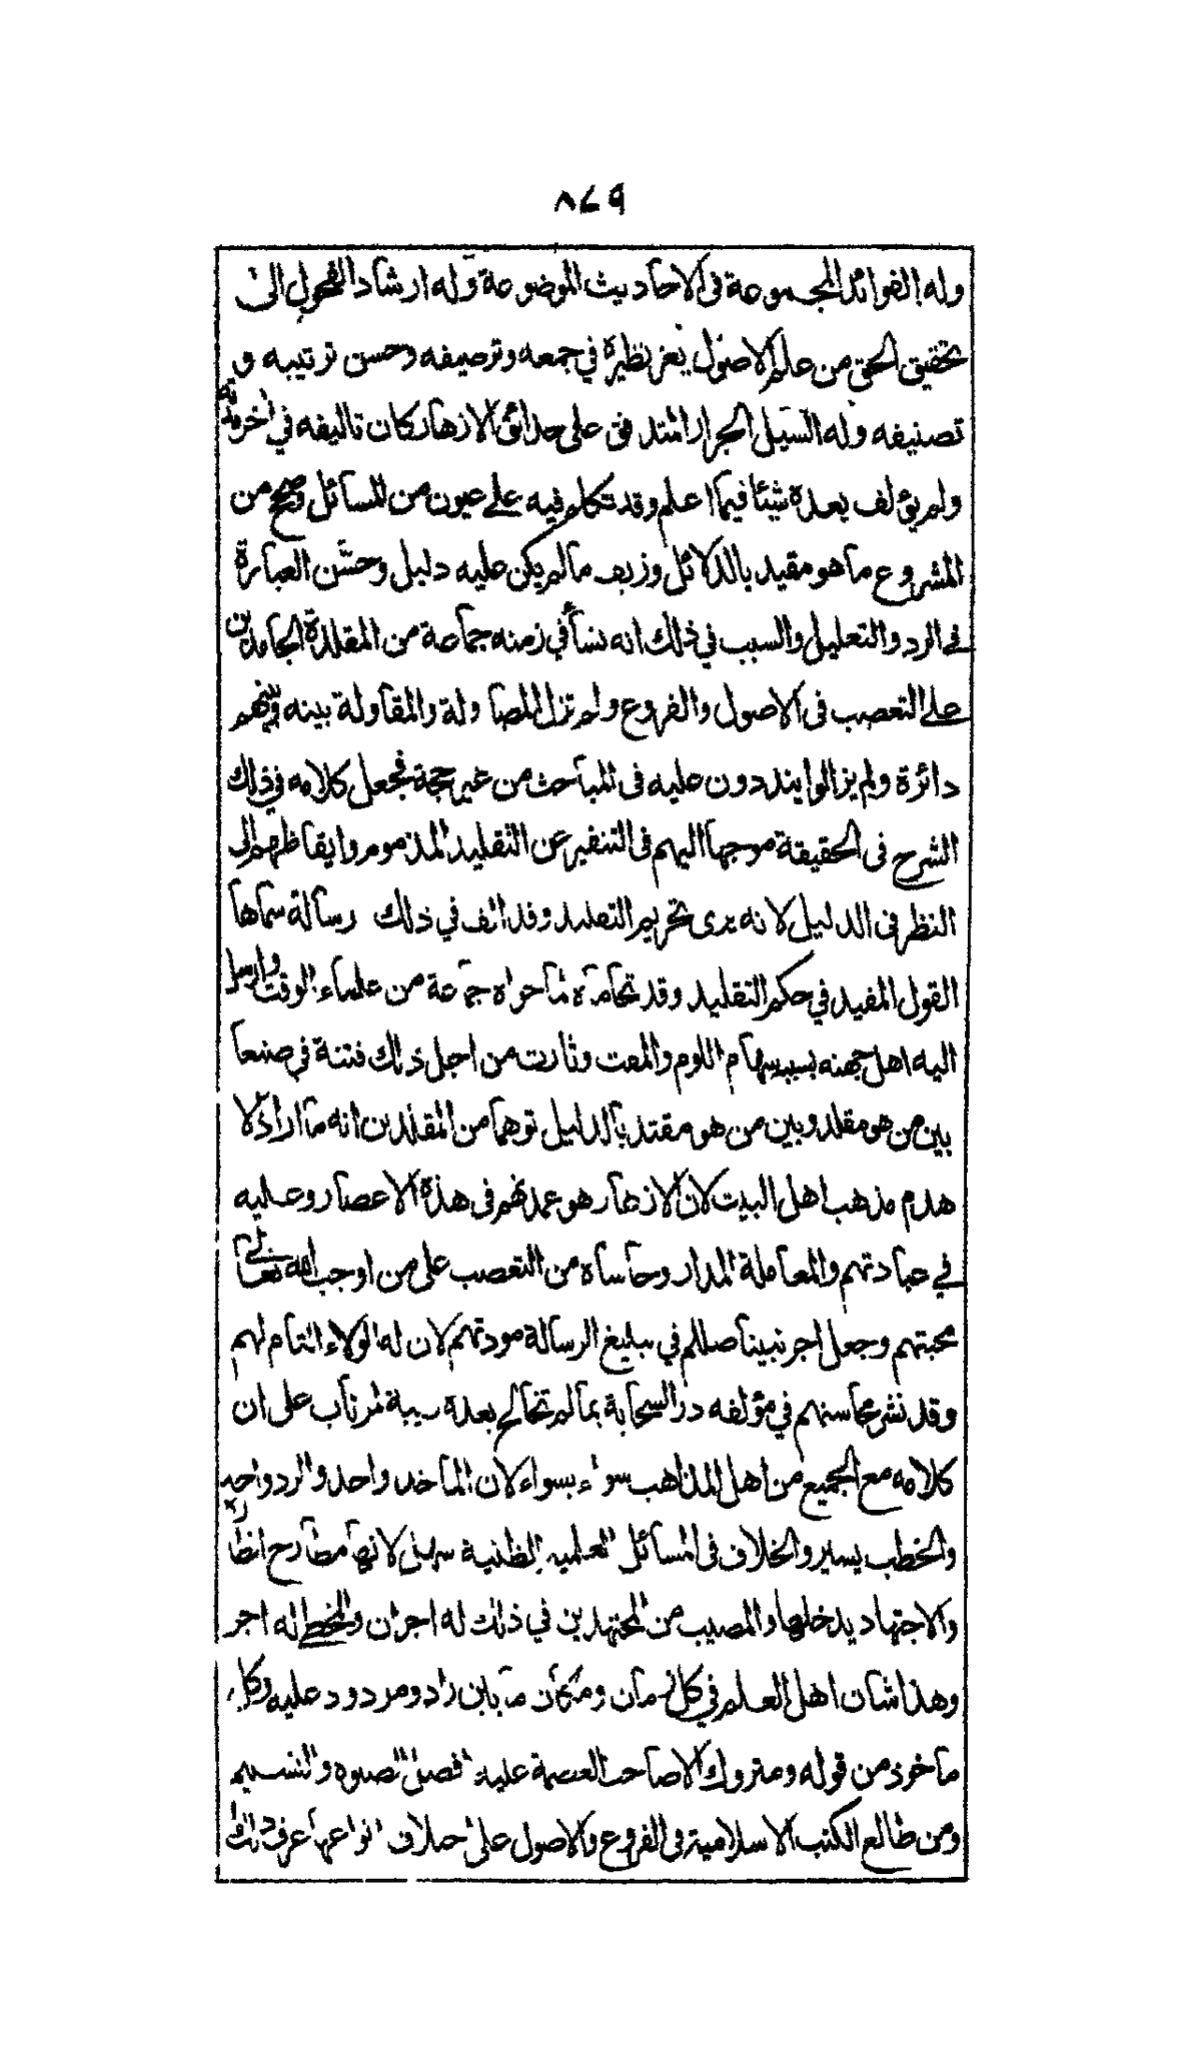 ٨٤٩
وله الفوائد المجموعة فى الاحاديث الموضوعة وله ارشاد الفحول الى
تحقيق الحق من علم الاصول يعز نظيرة في جمعه وترصيفه وحسن ترتيبه و
تصنيفه وله السيل الجرار المتدفق على حدائق الازهار كان تاليفه في اخر مدته
ولم يؤلف بعدة شيئا فيما اعلم وقد تكلم فيه على عيون من المسائل وصحح من
المشروع ما هو مقيد بالدلائل وزيف مالم يكن عليه دليل وخشن العبارة
فى الرد والتعليل والسبب في ذلك انه نشأ في زمنه جماعة من المقلدة الجامدين
على التعصب فى الاصول والفروع ولم تزل المصاولة والمقاولة بينه وبينهم
دائرة ولم يزالوا ينددون عليه فى المباحث من غير حجة فجعل كلامه في ذلك
الشرح فى الحقيقة موجها اليهم فى التنفير عن التقليد المذموم وايقاظهم الى
النظر فى الدليل لانه يرى تحريم التقليد وقد الف في ذلك رسالة سماها
القول المفيد في حكم التقليد وقد تحامته ما حواه جماعة من علماء الوقت وارسل
اليه اهل جهته بسببه سهام اللوم والمقت وثارت من اجل ذلك فتنة في صنعا
بين من هو مقلد وبين من هو مقتد بالدليل توهما من المقلدين انه ما اراد الا
هدم مذهب اهل البيت لان الازهار هو عمدتهم فى هذه الاعصار وعليه
في عبادتهم والمعاملة المدار وحاشاه من التعصب على من اوجب الله تعالى
محبتهم وجعل اجر نبينا صللم في تبليغ الرسالة مودتهم لان له الولاء التام لهم
وقد نشر محاسنهم في مؤلفه در السحابة بما لم تخالج بعده ريبة لمرتاب على ان
كلامه مع الجميع من اهل المذاهب سواء بسواء لان المأخذ واحد والرد واحد
والخطب يسير والخلاف فى المسائل العلمية الظنية سهل لانها مطارح انظار
والاجتهاد يدخلها والمصيب من المجتهدين في ذلك له اجران والمخطئ له اجر
وهذا شان اهل العلم في كل زمان ومكان ما بين راد ومردود عليه وكل
ماخوذ من قوله ومتروك الا صاحب العصمة عليه افضل الصلوة والتسليم
ومن طالع الكتب الاسلامية فى الفروع والاصول على اختلاف انواعها عرف ذلك